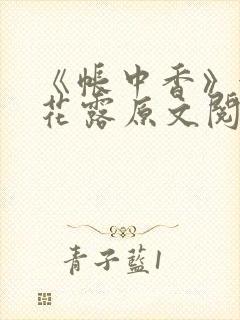 《帐中香》
花露原文阅
青子藍1